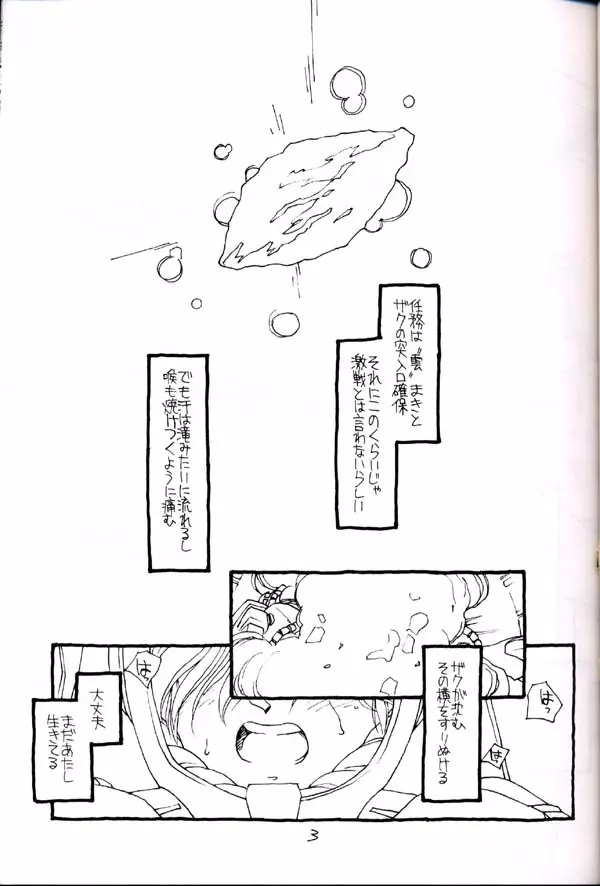 任務は“雲”まきと
ザクの突入口確保
それにこのくらいじゃ
激戦とは言わないらしい
でも汗は滝みたいに流れるし
喉も焼けつくように痛む
ザクが沈む
その横をすりぬける
はっ
はっ
はっ
大丈夫
まだあたし
生きてる
3